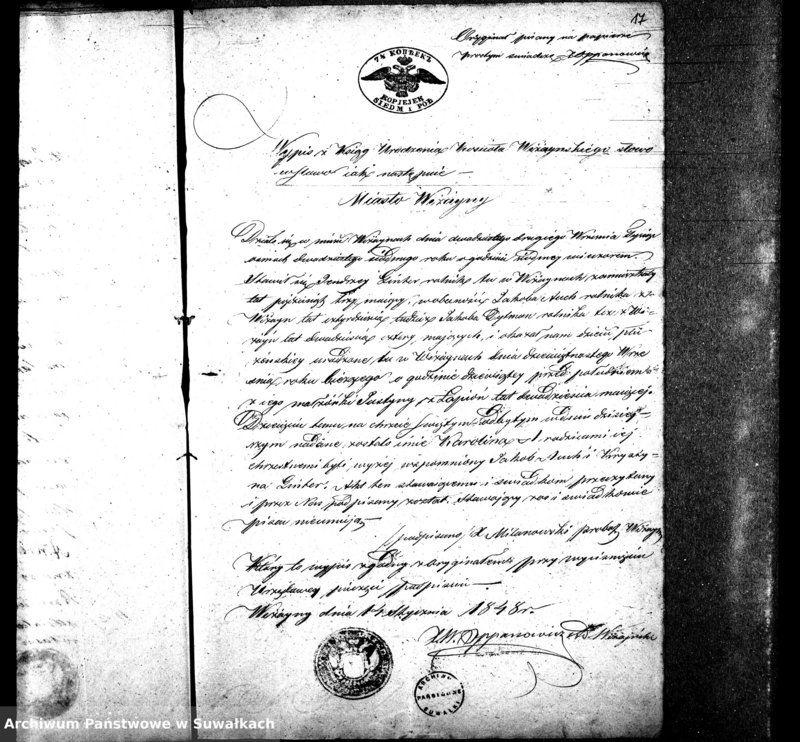 17
Oryginał pisany na papierze
prostym świadczę
7½ КОПѢЕКЪ
KOPIEJEK
SIEDM I PÓŁ
Wypis z Ksiąg Urodzenia Kościoła Wiżaynskiego słowo
w słowo iak następuie —
Miasto Wiżayny
Działo się w mieście Wiżaynach dnia dwudziestego drugiego Września Tysiąc
osmset dwudziestego siódmego roku o godzinie siódmey wieczorem.
Stawił się Jendrzey Ginter rolnik tu w Wiżaynach zamieszkały
lat pięćdziesiąt trzy maiący, w obecności Jakoba Auch rolnika z
Wiżayn lat czterdzieści tudzież Jakoba rolnika też z Wi-
żayn lat dwadzieścia cztery maiących, i okazał nam dziecię płci
żeńskiey urodzone tu w Wiżaynach dnia Wrze
śnia roku bieżącego o godzinie dziewiątey przed południem
z iego małżonki Justyny z lat dwadzieścia maiącey.
Dziecięciu temu na chrzcie świętym odbytym w dniu dzisiey-
szym nadane zostało imie Karolina. A rodzicami iey
chrzestnemi byli wyżey wspomniony Jakob Auch i Krysty-
na Ginter. Akt ten stawaiącemu i świadkom przeczytany
i przez Nas podpisany został. Stawaiący zaś i świadkowie
pisać nieumieią
/podpisano/ X Milanowski proboszcz Wiżayn
Który to wypis zgodny z oryginałem przy wyciśnięciu
Urzędowey pieczęci podpisuię —
Wiżayny dnia 14 Stycznia 1848 r.
ARCHIWUM
PAŃSTWOWE
SUWAŁKI
Archiwum Państwowe w Suwałkach